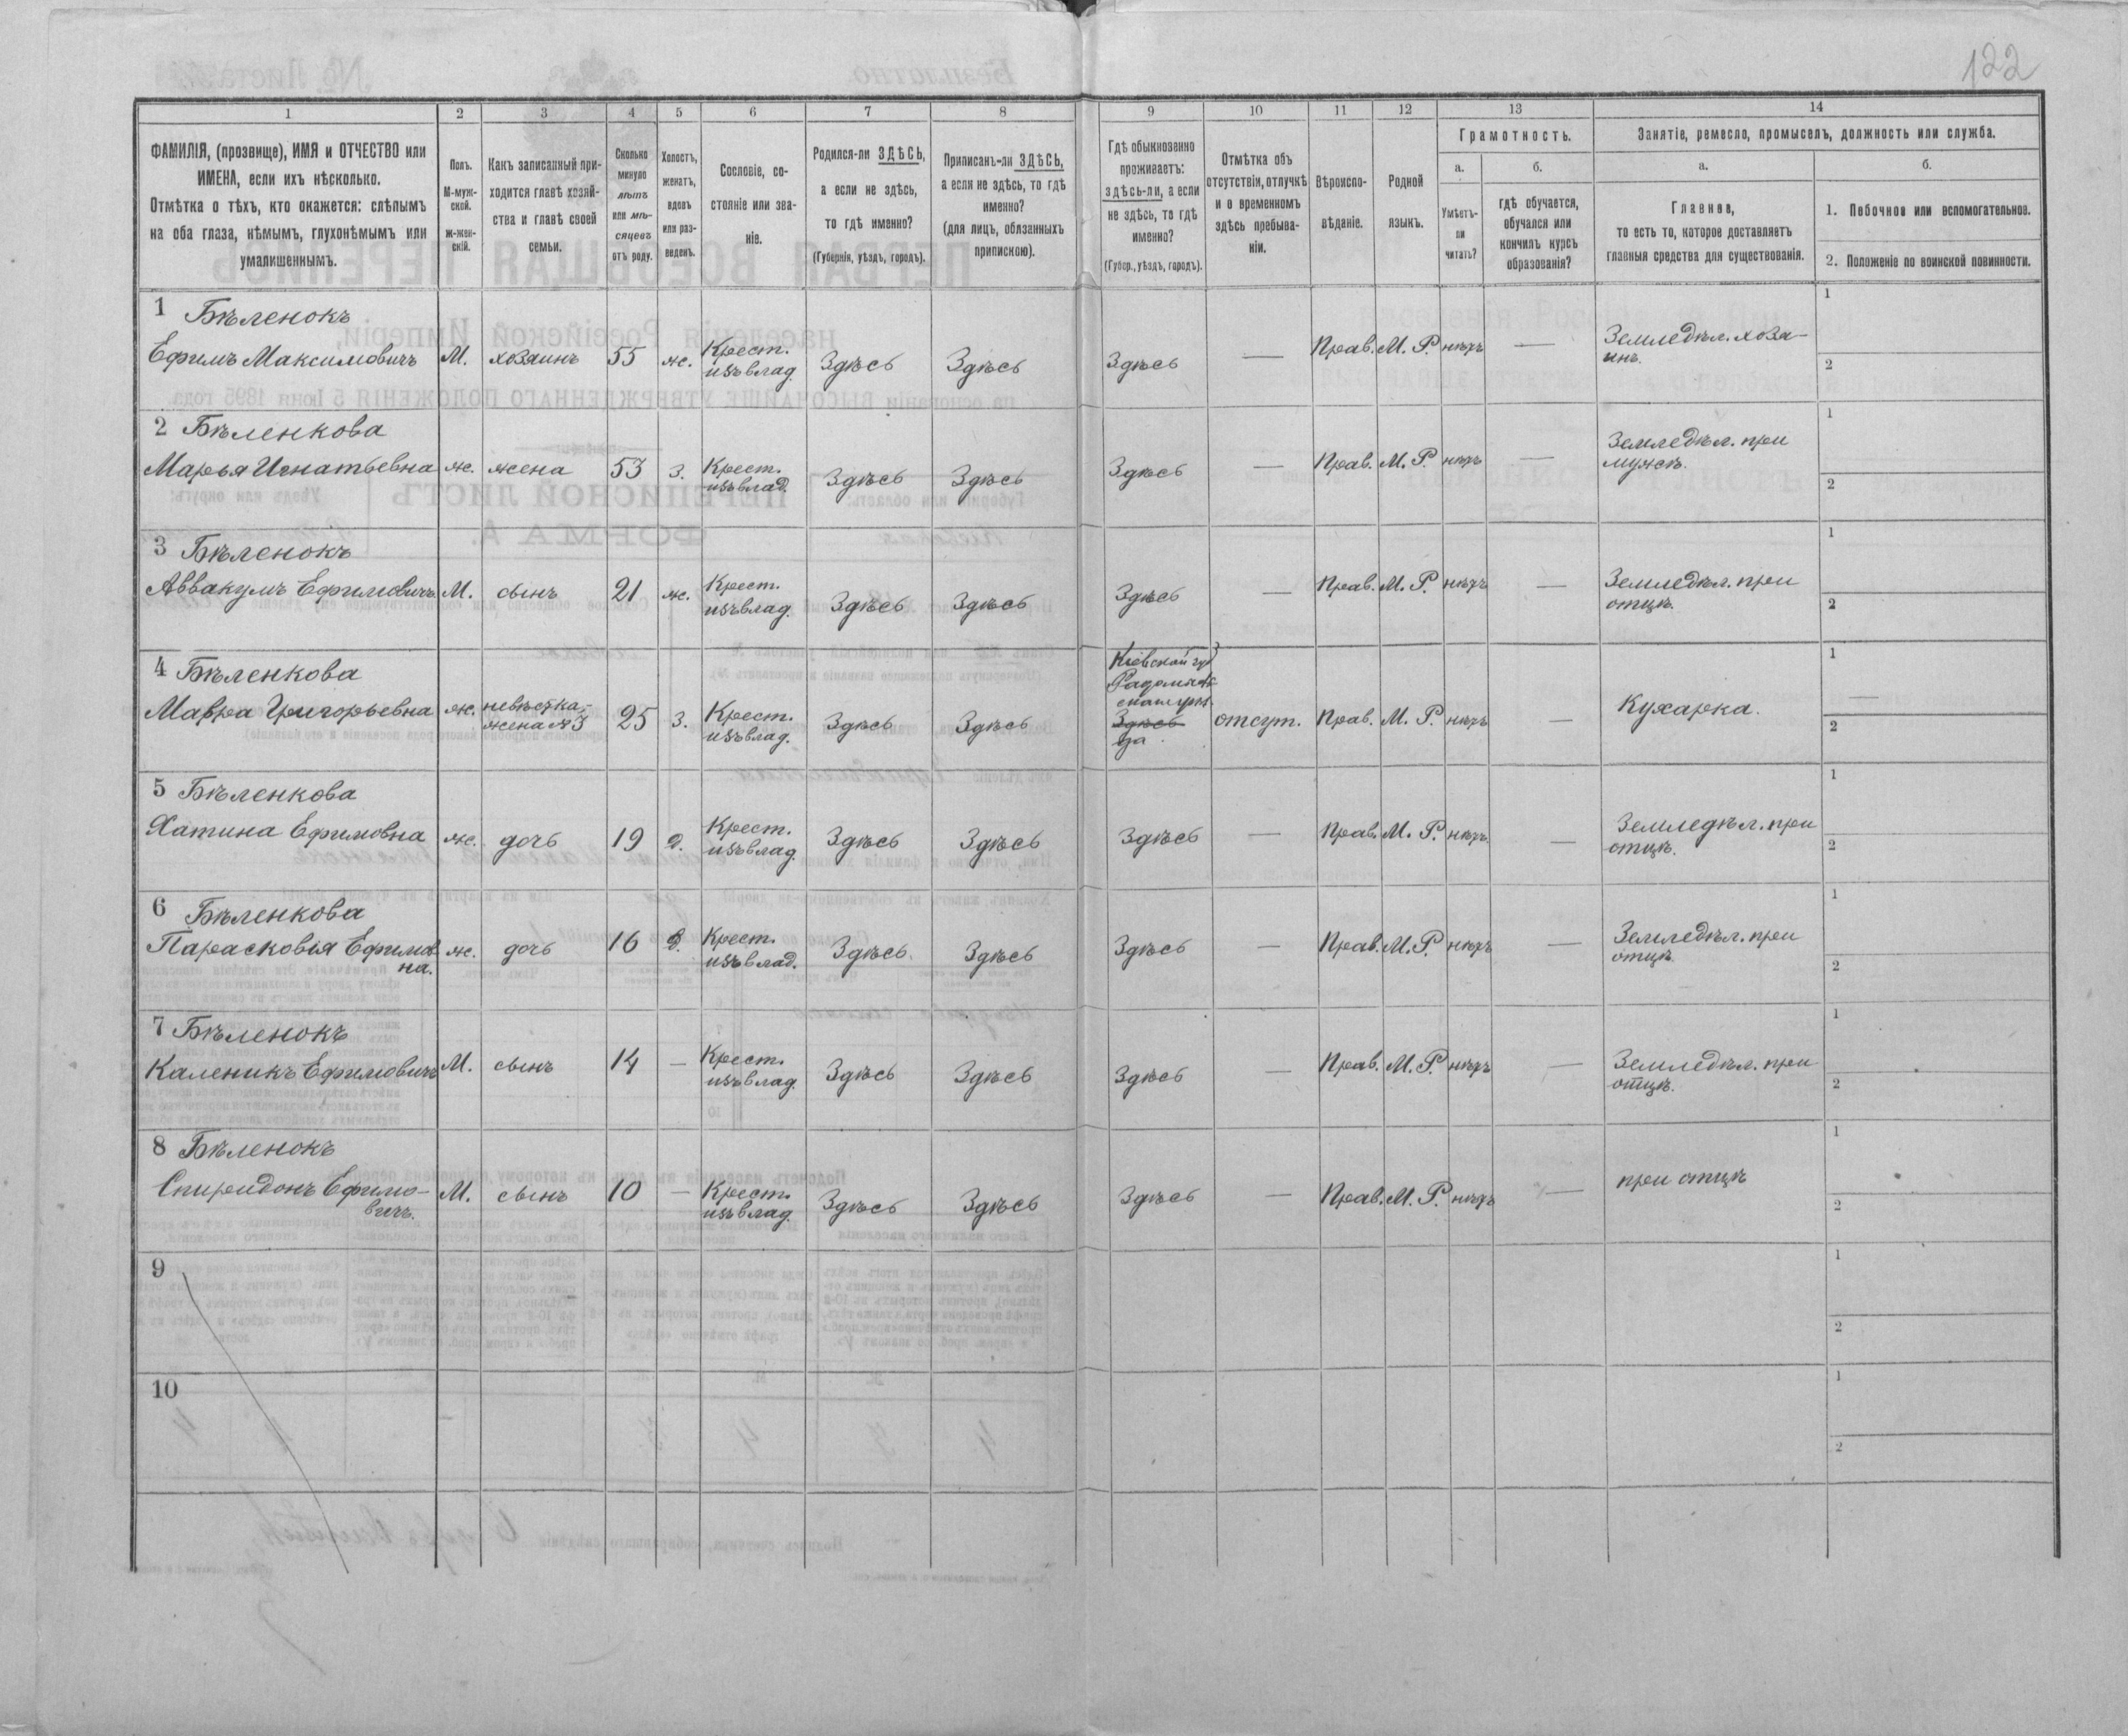 122
1 2 3 4 5 6 7 8 9 10 11 12 13 14
ФАМИЛІЯ, (прозвище), ИМЯ и ОТЧЕСТВО или
ИМЕНА, если ихъ нѣсколько.
Отмѣтка о тѣхъ, кто окажется: слѣпымъ
на оба глаза, нѣмымъ, глухонѣмымъ или
умалишеннымъ.
Полъ.
М-муж-
ской.
Ж-жен-
скій.
Какъ записанный при-
ходится главѣ хозяй-
ства и главѣ своей
семьи.
Сколько
минуло
лѣтъ
или мѣ-
сяцевъ
отъ роду.
Холостъ,
женатъ,
вдовъ
или раз-
веденъ.
Сословіе, со-
стояніе или зва-
ніе.
Родился-ли ЗДѢСЬ,
а если не здѣсь,
то гдѣ именно?
(Губернія, уѣздъ, городъ).
Приписанъ-ли ЗДѢСЬ,
а если не здѣсь, то гдѣ
именно?
(для лицъ, обязанныхъ
припискою).
Гдѣ обыкновенно
проживаетъ:
здѣсь-ли, а если
не здѣсь, то гдѣ
именно?
(Губер., уѣздъ, городъ).
Отмѣтка объ
отсутствіи, отлучкѣ
и о временномъ
здѣсь пребыва-
ніи.
Вѣроиспо-
вѣданіе.
Родной
языкъ.
Грамотность.
а.
Умѣетъ-
ли
читать?
б.
гдѣ обучается,
обучался или
кончилъ курсъ
образованія?
Занятіе, ремесло, промыселъ, должность или служба.
а.
Главное,
то есть то, которое доставляетъ
главныя средства для существованія.
б.
1. Побочное или вспомогательное.
2. Положеніе по воинской повинности.
1 Бѣленокъ
Ефимъ Максимовичъ М. хозяинъ 55 ж. Крест. изъ влад. Здѣсь Здѣсь Здѣсь — Прав. М. Р. нѣтъ — Земледѣл. хозя-
инъ. 1 2
2 Бѣленкова
Марья Игнатьевна ж. жена 53 З. Крест. изъ влад. Здѣсь Здѣсь Здѣсь — Прав. М. Р. нѣтъ — Земледѣл. при
мужѣ. 1 2
3 Бѣленокъ
Аввакумъ Ефимовичъ М. сынъ 21 ж. Крест. изъ влад. Здѣсь Здѣсь Здѣсь — Прав. М. Р. нѣтъ — Земледѣл. при
отцѣ. 1 2
4 Бѣленкова
Мавра Григорьевна ж. невѣстка, жена №3 25 З. Крест. изъ влад. Здѣсь Здѣсь Кіевской губ. Здѣсь отсут. Прав. М. Р. нѣтъ — Кухарка. 1 — 2
5 Бѣленкова
Хатина Ефимовна ж. дочь 19 д. Крест. изъ влад. Здѣсь Здѣсь Здѣсь — Прав. М. Р. нѣтъ. — Земледѣл. при
отцѣ. 1 2
6 Бѣленкова
Парасковія Ефимов
на. ж. дочь 16 д. Крест. изъ влад. Здѣсь. Здѣсь Здѣсь — Прав. М. Р. нѣтъ — Земледѣл. при
отцѣ. 1 2
7 Бѣленокъ
Каленикъ Ефимовичъ М. сынъ 14 — Крест. изъ влад. Здѣсь Здѣсь Здѣсь — Прав. М. Р. нѣтъ — Земледѣл. при
отцѣ. 1 2
8 Бѣленокъ
Спиридонъ Ефимо-
вичъ. М. сынъ 10 — Крест. изъ влад. Здѣсь Здѣсь Здѣсь — Прав. М. Р. нѣтъ — при отцѣ 1 2
9 1 2
10 1 2